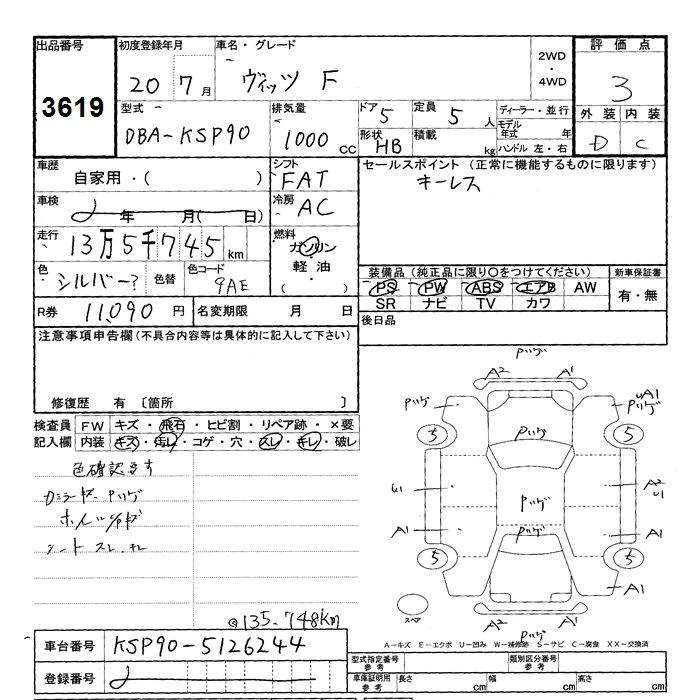 出品番号 3619
初度登録年月 20 7月
車名・グレード ヴィッツ F
2WD・4WD
評価点 3
外装 D 内装 C
型式 DBA-KSP90
排気量 1000cc
ドア 5 形状 HB
定員 5人 積載 kg
ディーラー・並行
モデル年式 年
ハンドル 左・右
車歴 自家用・( )
シフト FAT
セールスポイント (正常に機能するものに限ります)
キーレス
車検 年 月( 日)
冷房 AC
走行 13万5千745km
燃料 ガソリン・軽油・( )
色 シルバー? 色替 色コード 9AE
装備品(純正品に限り○をつけてください) 新車保証書
PS PW ABS エアB AW 有・無
SR ナビ TV カワ
R券 11,090円 名変期限 月 日
後日品
注意事項申告欄(不具合内容等は具体的に記入して下さい)
修復歴 有〔箇所 〕
検査員記入欄
FW キズ・飛石・ヒビ割・リペア跡・×要
内装 キズ・汚レ・コゲ・穴・スレ・キレ・破レ
色確認要す
シート スレ・キレ
◎135.748km
Pリゲ
A2 A1
Pリゲ Pリゲ UA1 Pリゲ
3 5
U1 Pリゲ A2 U1
A1 Pリゲ A1
5 5
A1
スペア A2 A1
Pリゲ
A-キズ E-エクボ U-凹み W-補修跡 S-サビ C-腐食 XX-交換済
車台番号 KSP90-5126244
型式指定番号 参考 類別区分番号 参考
登録番号
車庫証明用 参考 長さ cm 幅 cm 高さ cm